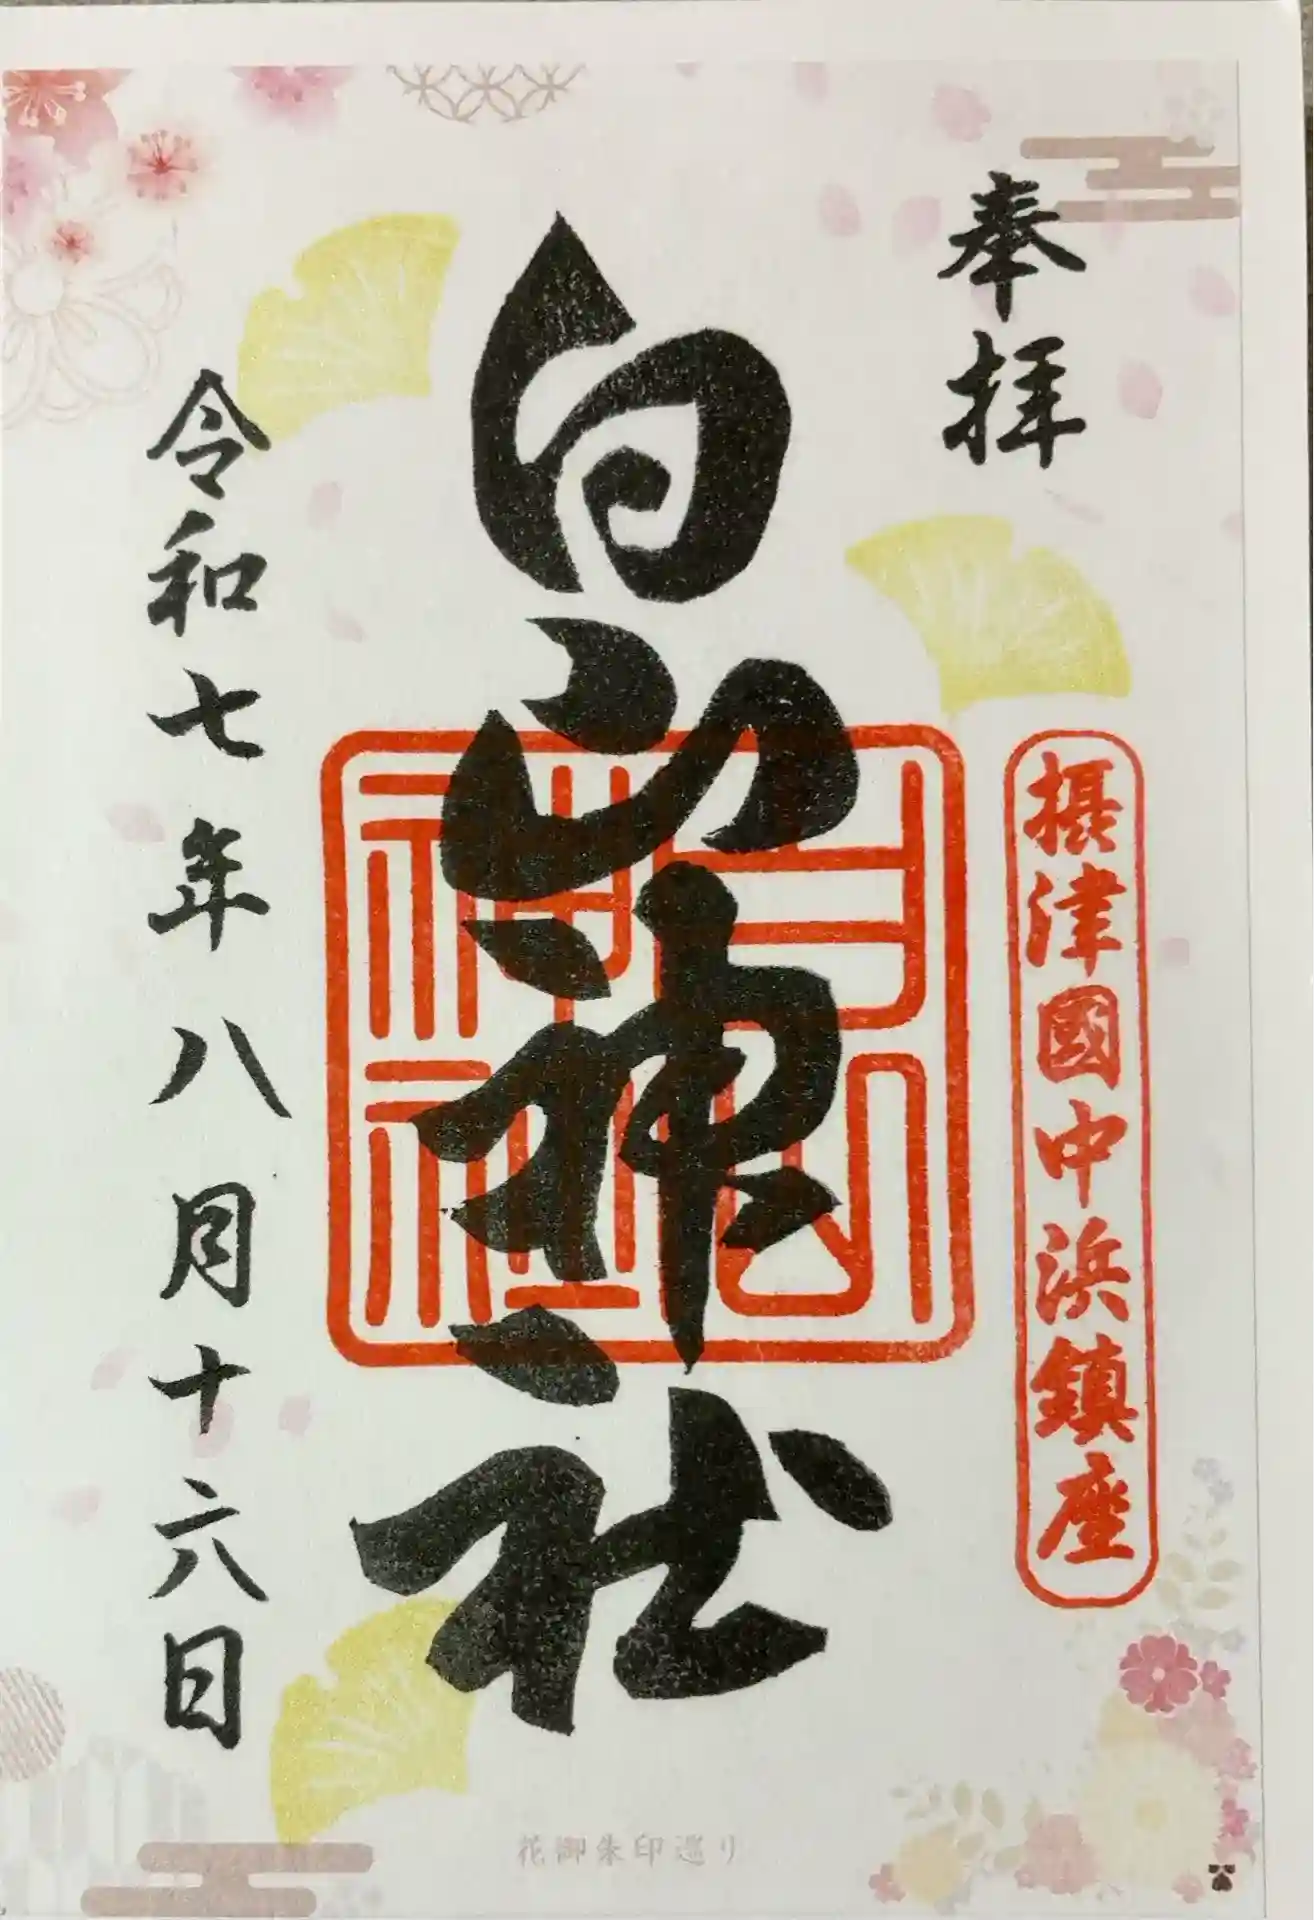 奉拝
摂津國中浜鎮座
白山神社
白山
神社
令和七年八月十六日
花御朱印巡り